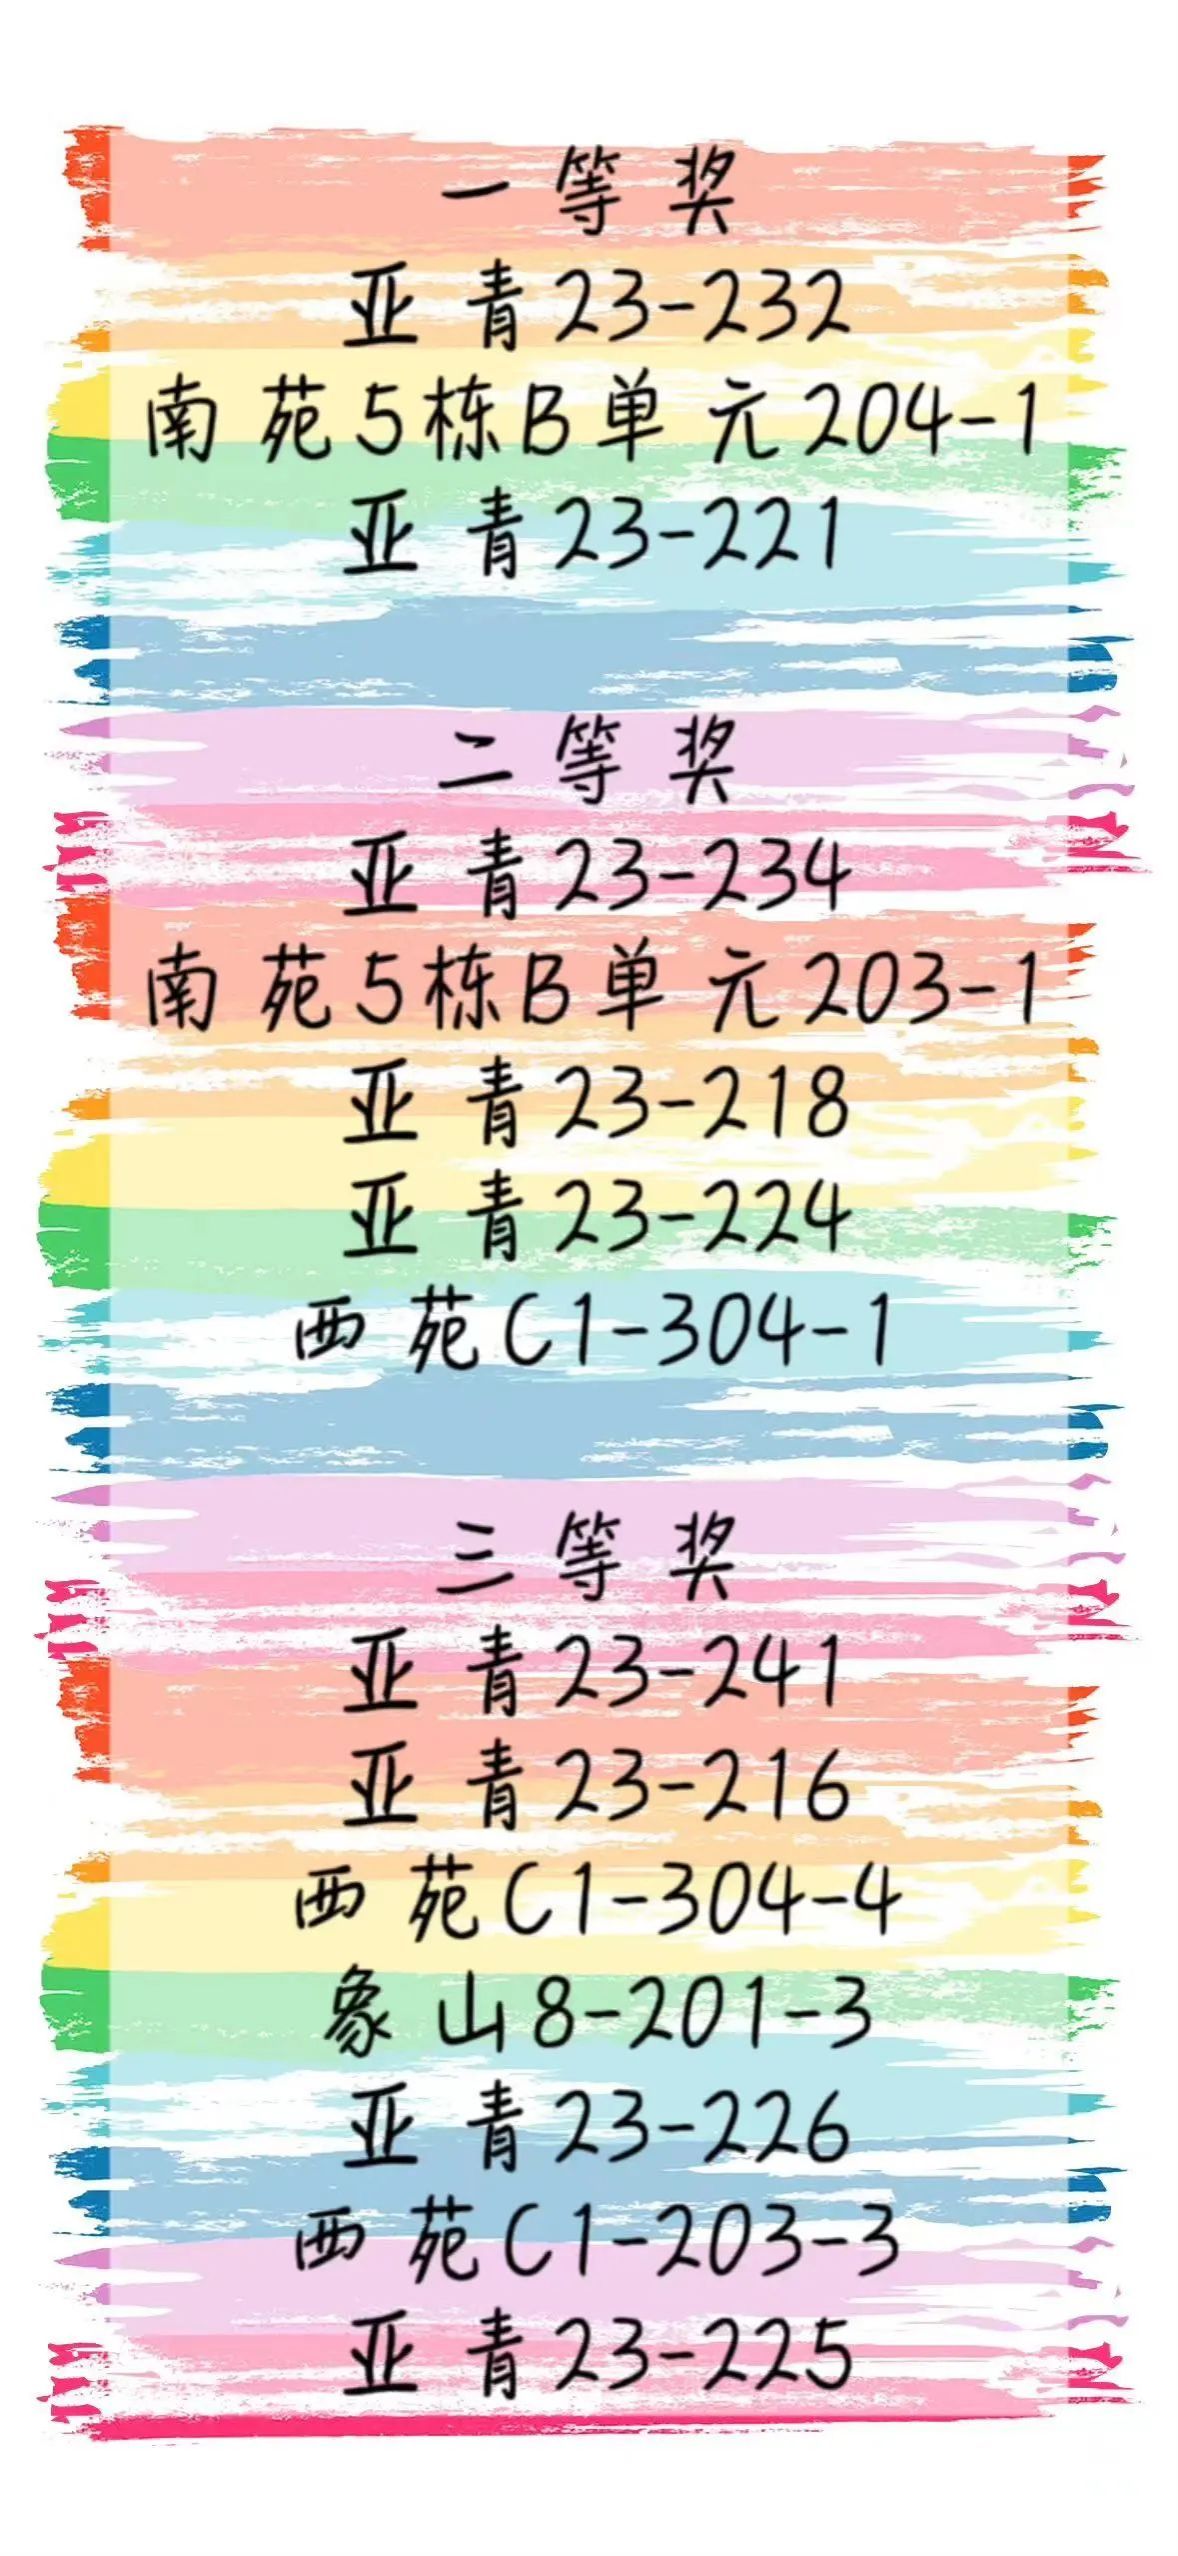 一等奖
亚青23-232
南苑5栋B单元204-1
亚青23-221
二等奖
亚青23-234
南苑5栋B单元203-1
亚青23-218
亚青23-224
西苑C1-304-1
三等奖
亚青23-241
亚青23-216
西苑C1-304-4
象山8-201-3
亚青23-226
西苑C1-203-3
亚青23-225